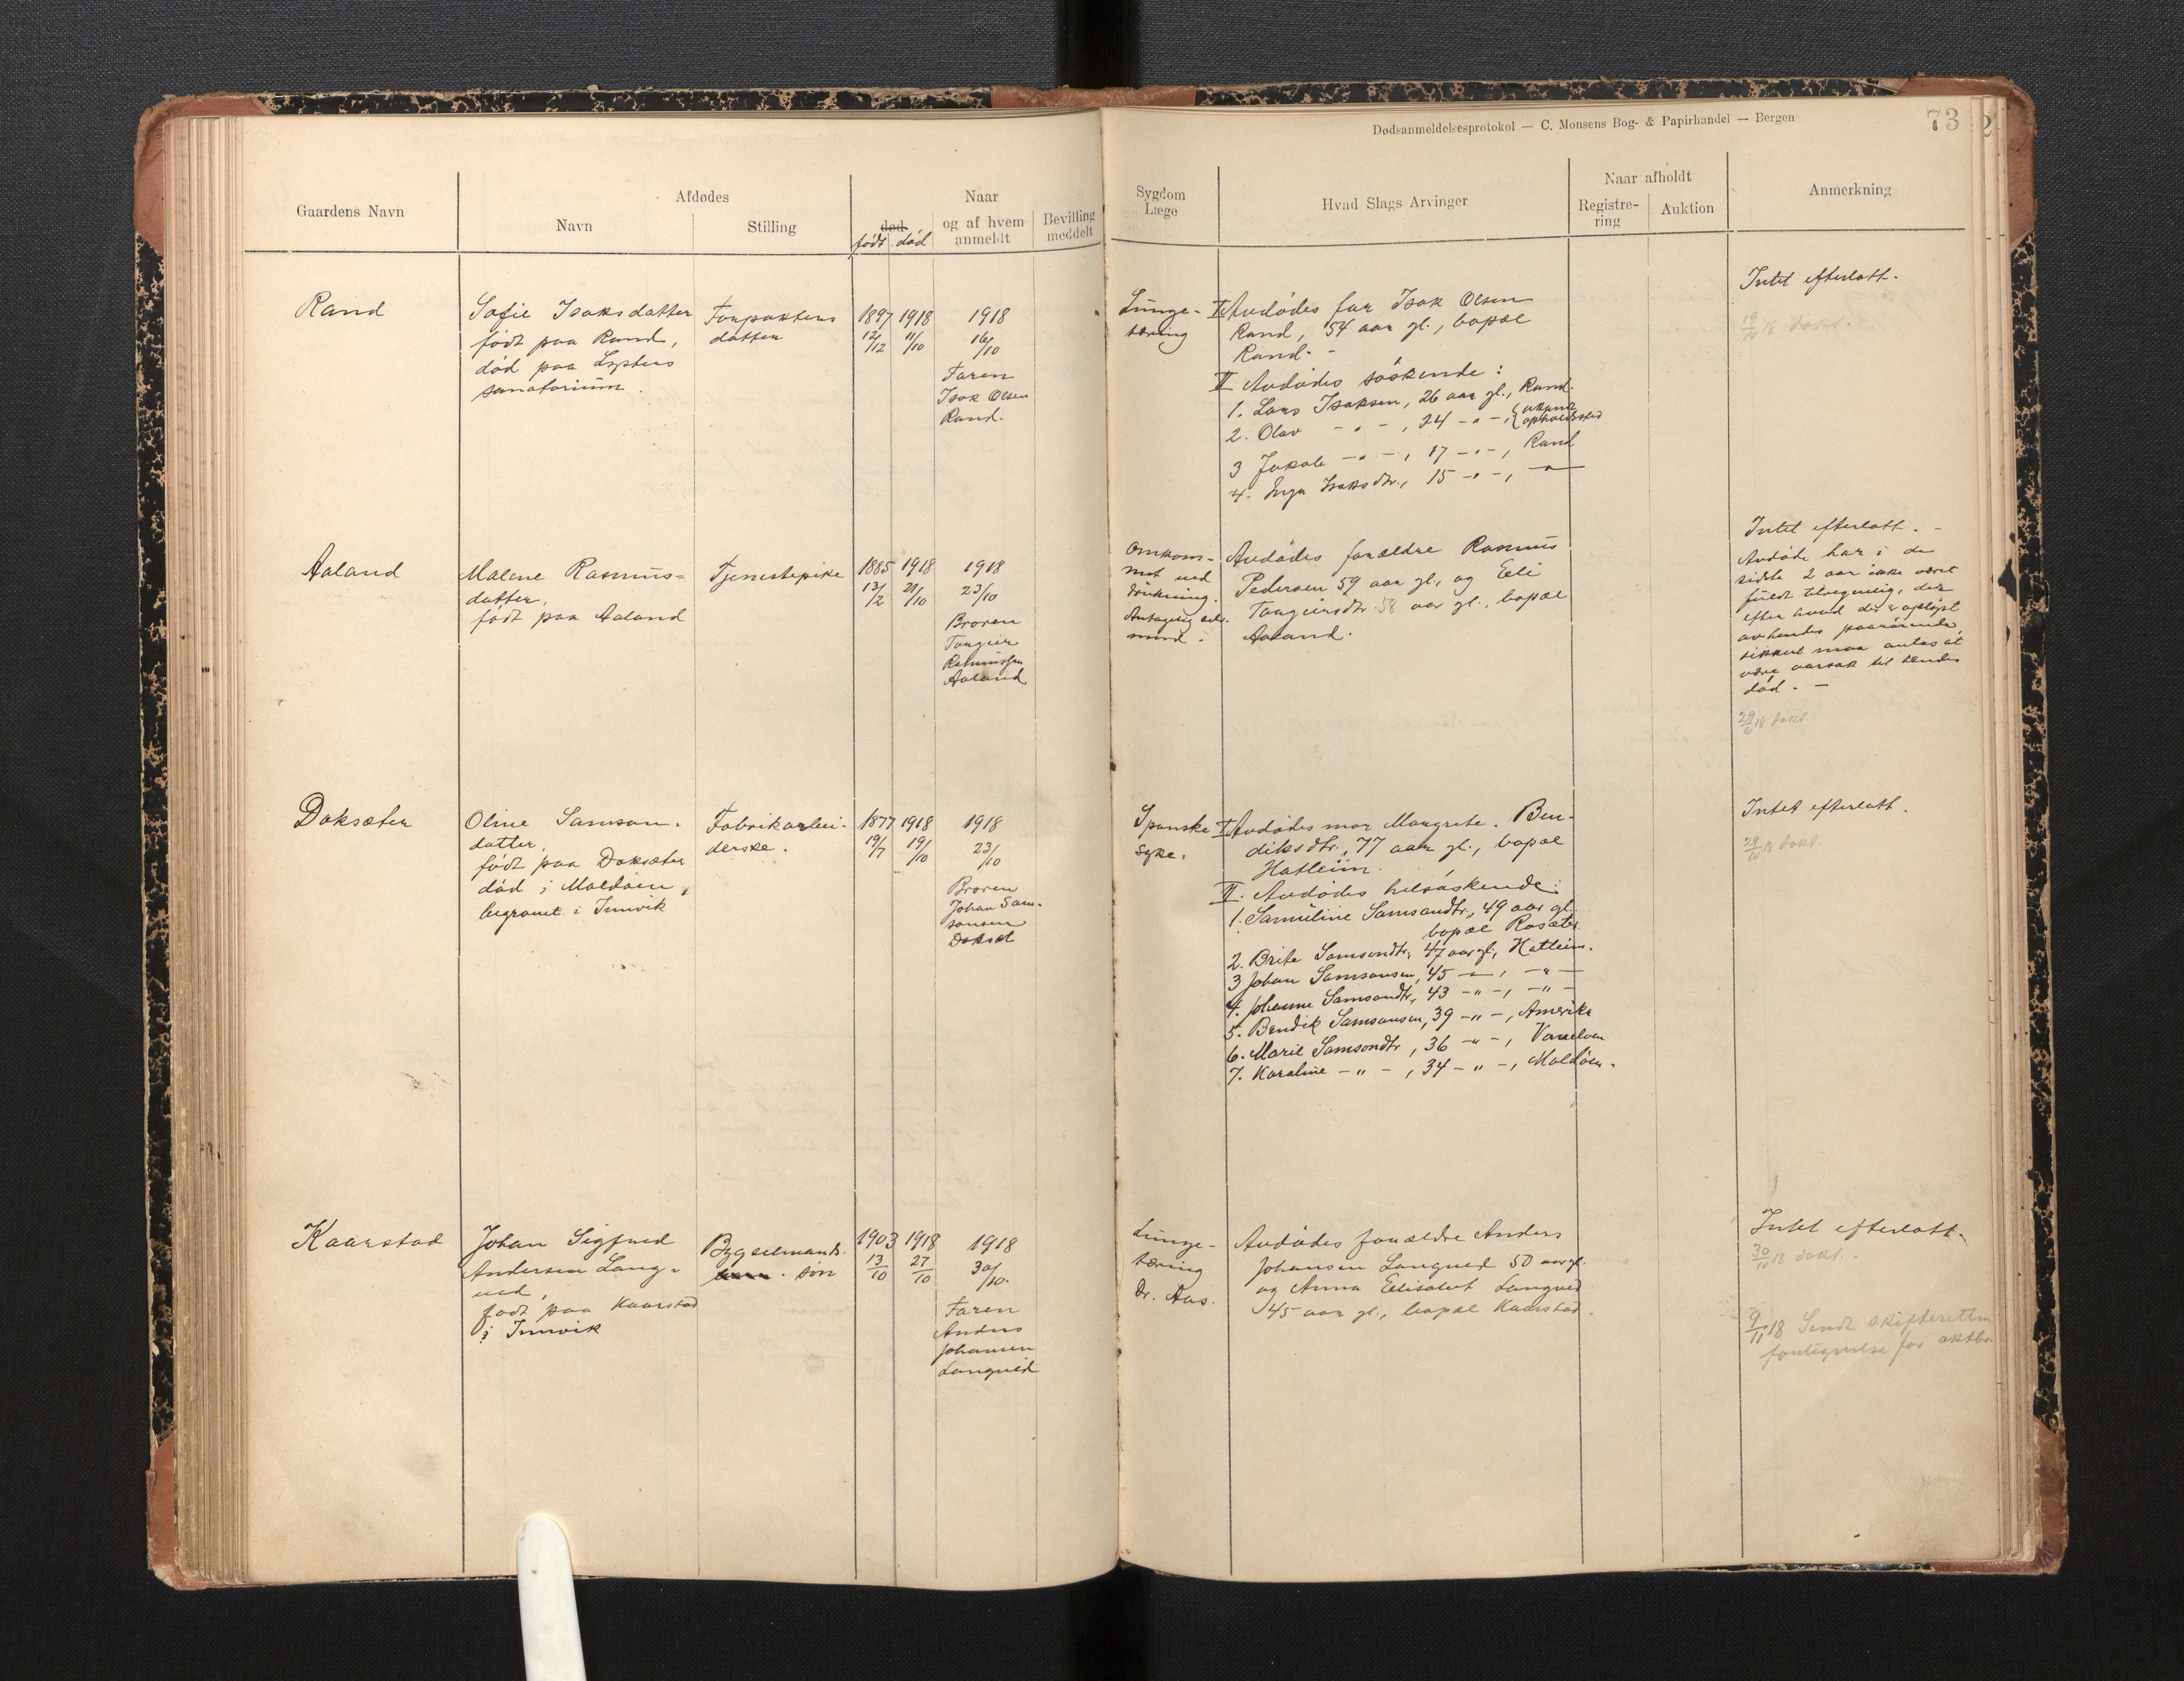 Dødsanmeldelsesprotokol — C. Monsens Bog- & Papirhandel — Bergen
73
Gaardens Navn
Afdødes
Navn
Stilling
død.
født død
Naar
og af hvem
anmeldt
Bevilling
meddelt
Sygdom
Læge
Hvad Slags Arvinger
Naar afholdt
Registre-
ring
Auktion
Anmerkning
Rand
Sofie Isaksdatter
født paa Rand,
død paa Lysters
sanatorium.
Forpakters
datter
1897 1918
12/12 11/10
1918
16/10
Faren
Isak Olsen
Rand.
Lunge-
tæring
I Avdødes far Isak Olsen
Rand, 54 aar gl., bopæl
Rand. -
II Avdødes søskende:
1. Lars Isaksen, 26 aar gl., Rand.
2. Olav - " - , 24 - " -, { ukjendt
opholdssted
3 Jakob - " - , 17 - " -, Rand
4. Inga Isaksdtr., 15 - " -, - " -
Intet efterlatt.
19/10 18 dokt.
Aaland
Malene Rasmus=
datter,
født paa Aaland
Tjenestepike
1885 1918
13/2 21/10
1918
23/10
Broren
Tangeir
Rasmussen
Aaland
Omkom-
met ved
drukning.
Antagelig selv-
mord.
Avdødes forældre Rasmus
Pedersen 59 aar gl, og Eli
Tangeirsdtr 58 aar gl., bopæl
Aaland.
Intet efterlatt. -
Avdøde har i de
sidste 2 aar ikke været
fuldt tilregnelig, der
efter hvad der er oplyst
av hendes paarørende,
sikkert maa antas at
være aarsak til hendes
død. -
29/10 18 dokt.
Doksæter
Oline Samson-
datter,
født paa Doksæter
død i Maldøen,
begravet i Innvik
Fabrikarbei-
derske.
1877 1918
19/7 19/10
1918
23/10
Broren
Johan Sam-
sonsen
Doksæt
Spanske
syke.
I Avdødes mor Margrete Ben-
diksdtr., 77 aar gl., bopæl
Hatleim.
II. Avdødes helsøskende:
1. Samuline Samsondtr., 49 aar gl.
bopæl Rosæter
2. Brite Samsondtr., 47 aar gl., Hatleim.
3 Johan Samsonsen, 45 - " -, - " -
4. Johanne Samsondtr., 43 - " -, - " -
5. Bendik Samsonsen, 39 - " -, Amerika
6. Marie Samsondtr, 36 - " -, Vanelven
7. Karoline - " - , 34 - " -, Maldøen.
Intet efterlatt.
29/10 18 dokt.
Kaarstad
Johan Sigfred
Andersen Lang-
ved,
født paa Kaarstad
i Innvik
Bygselmands-
søn
1903 1918
13/10 27/10
1918
30/10.
Faren
Anders
Johansen
Langved
Lunge-
tæring
Dr. Aas.
Avdødes forældre Anders
Johansen Langved 50 aar gl.
og Anna Elisabet Langved
45 aar gl., bopæl Kaarstad.
Intet efterlatt.
30/10 18 dokt.
9/11 18 Sendt skifteretten
fortegnelse for oktbr.